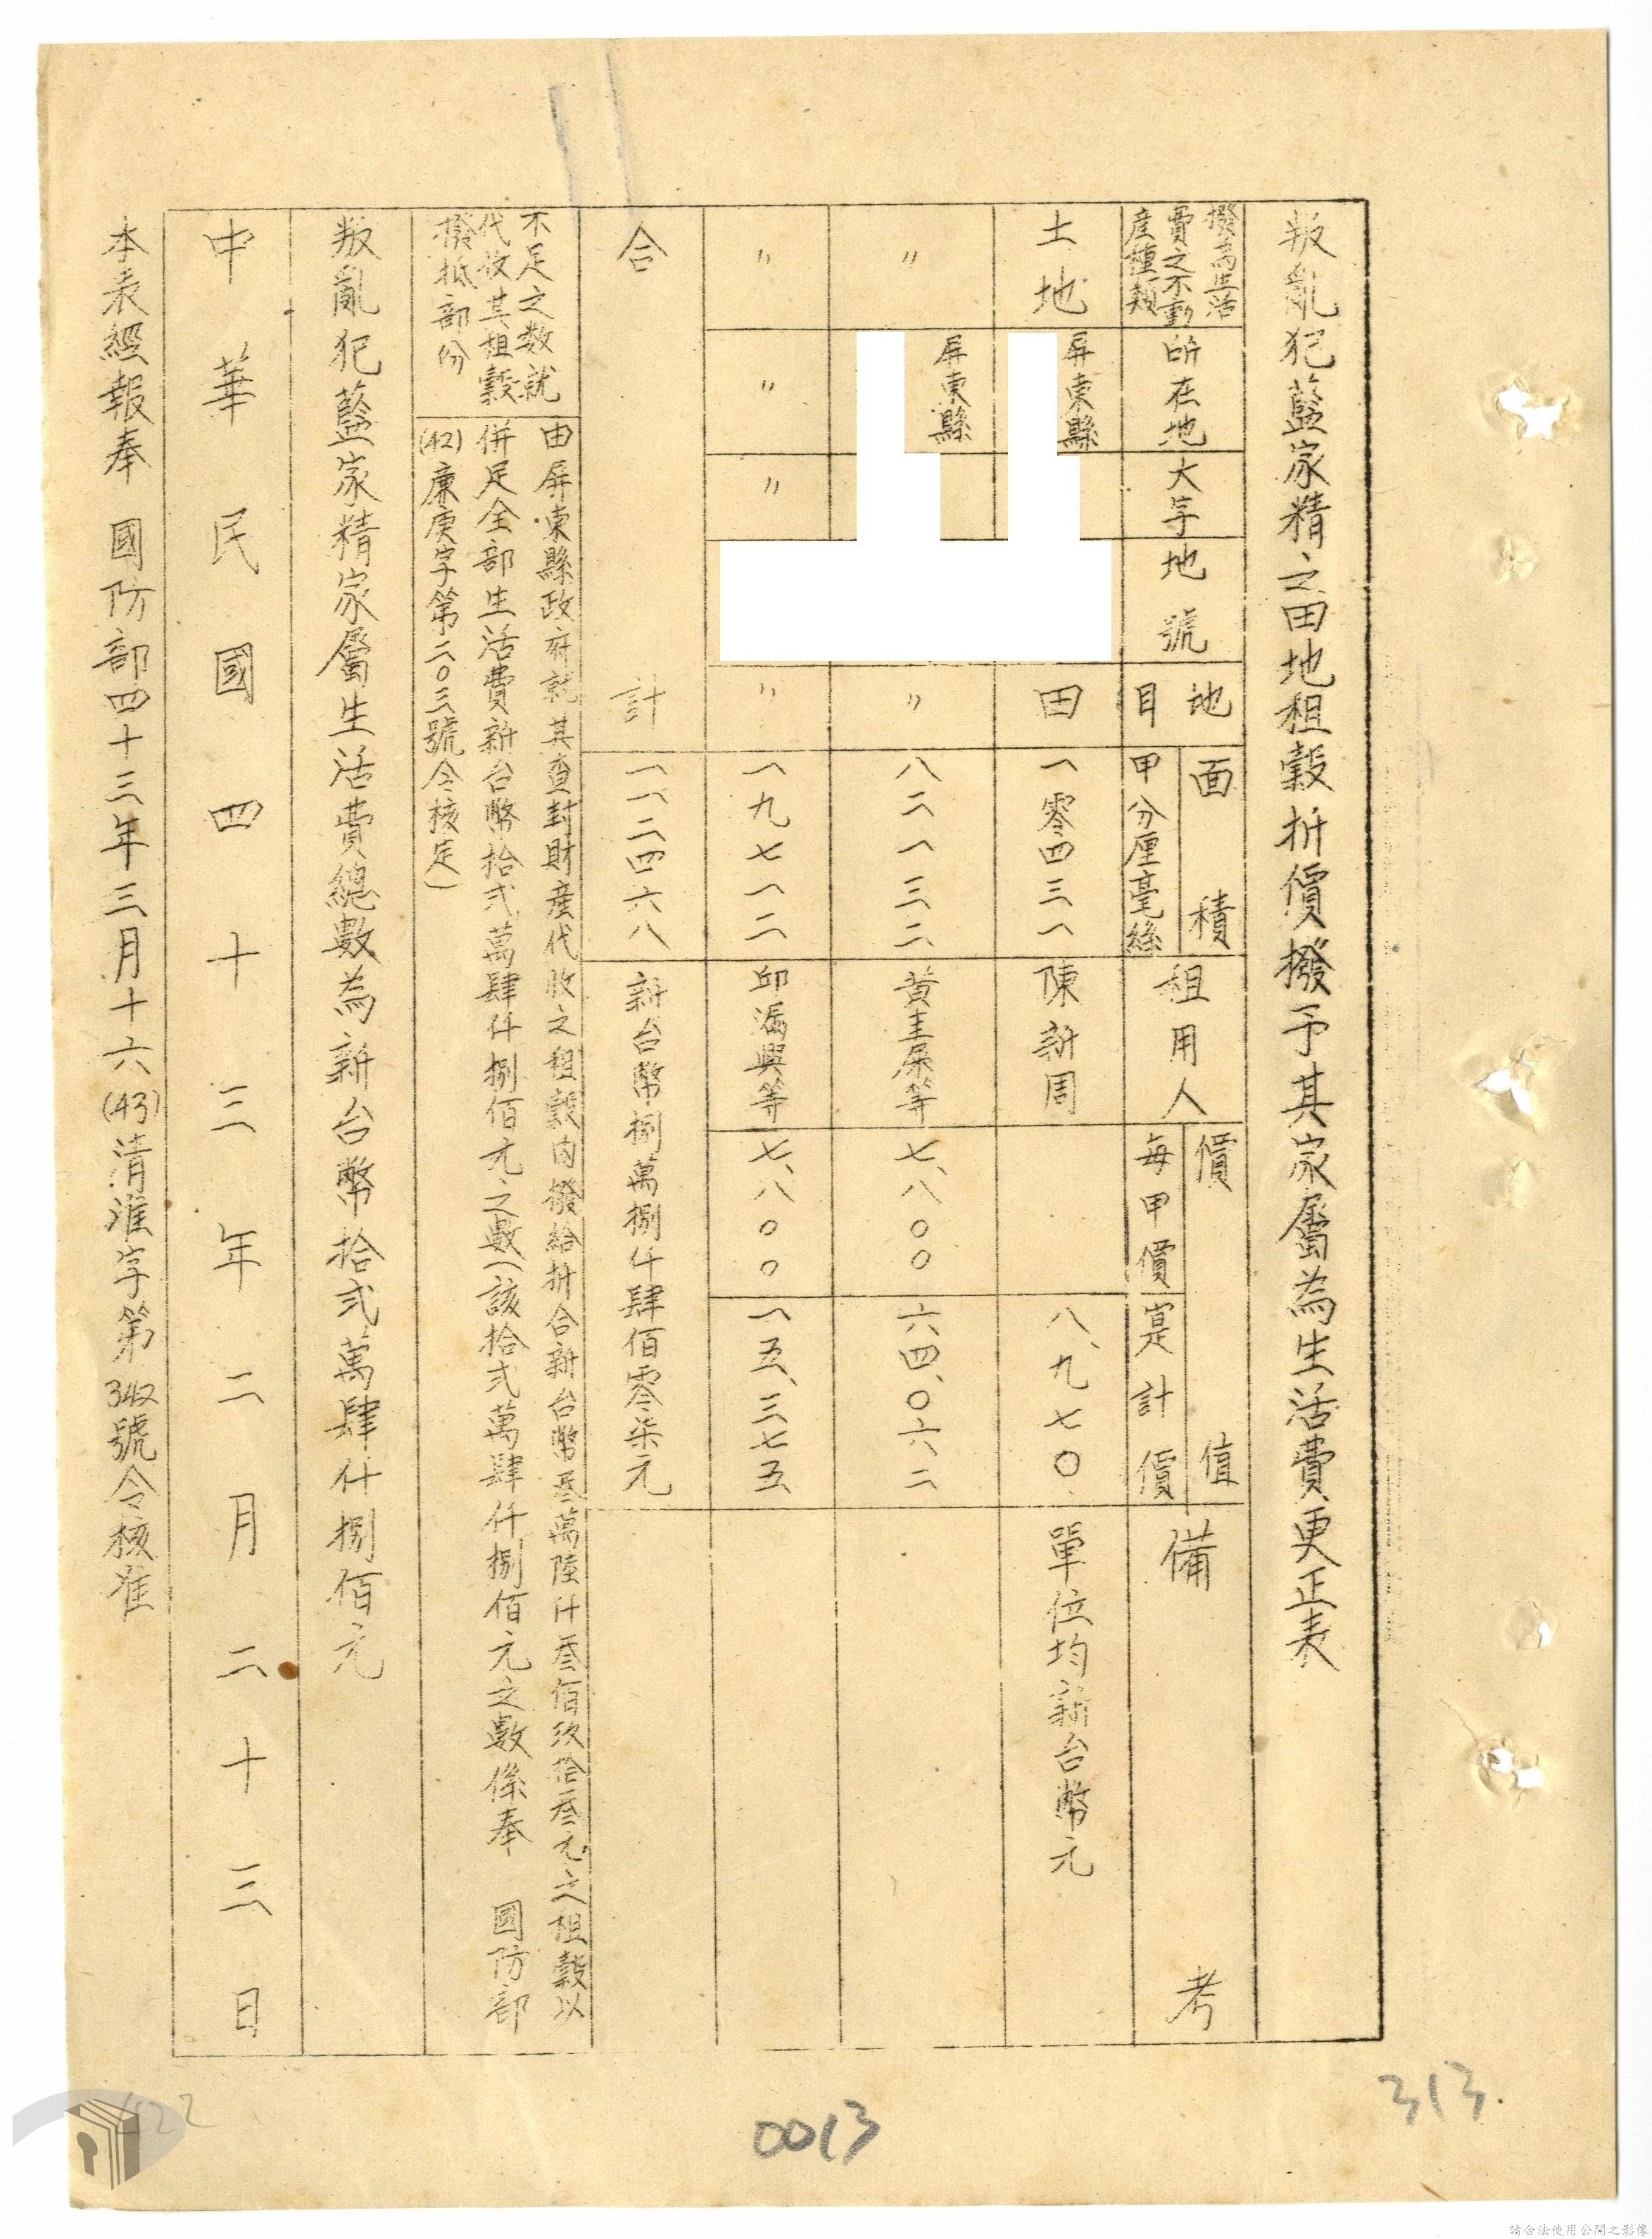 叛亂犯藍家精之田地租穀折價撥予其家屬為生活費更正表
撥為生活
費之不動
產種類
所在地
大字
地號
地目
面積
甲分厘毫絲
租用人
價值
每甲價
寔計價
備考
土地
屏東縣
田
一零四三一
陳新周
八、九七〇
單位均新台幣元
〃
屏東縣
〃
八二一三二
黃圭屎等
七、八〇〇
六四、〇六二
〃
〃
〃
〃
一九七一二
邱漏興等
七、八〇〇
一五、三七五
合計
一一二四六八
新台幣捌萬捌仟肆佰零柒元
不足之数就
代收其租穀
撥抵部份
由屏東縣政府就其查封財產代收之租穀內撥給折合新台幣叁萬陸仟叁佰玖拾叁元之租穀以
併足全部生活費新台幣拾弍萬肆仟捌佰元之數(該拾弍萬肆仟捌佰元之數係奉 國防部
(42)廉庚字第二〇三號令核定)
叛亂犯藍家精家屬生活費總數為新台幣拾弍萬肆仟捌佰元
中華民國四十三年二月二十三日
本表經報奉 國防部四十三年三月十六(43)清淮字第342號令核准
313.
0013
622
請合法使用公開之影像